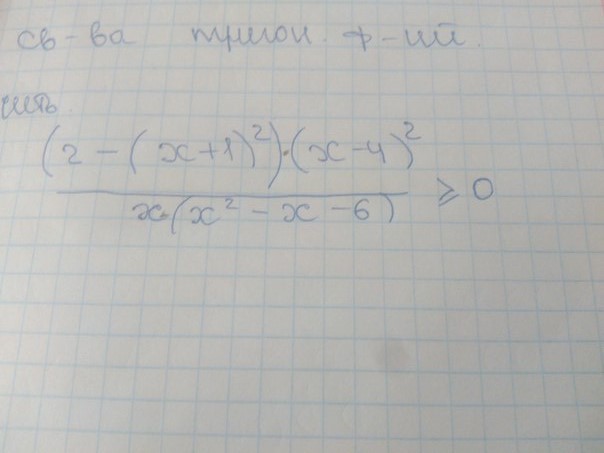 св-ва тригон. ф-ий.
ить.
(2 - (x+1)²)·(x-4)²
x·(x² - x - 6) ≥ 0